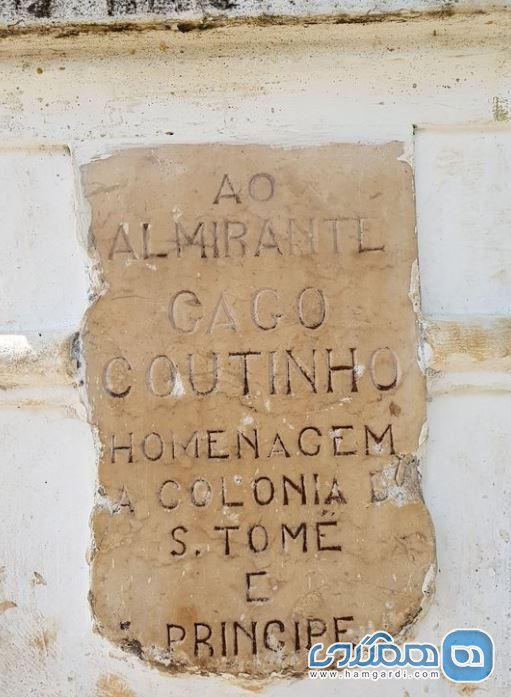 AO
ALMIRANTE
GAGO
COUTINHO
HOMENAGEM
A COLONIA D
S. TOMÉ
E
PRINCIPE
همگردی
www.hamgardi.com